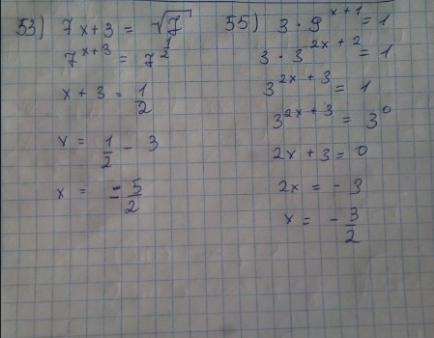 53) 7^{x+3} = √7
7^{x+3} = 7^{\frac{1}{2}}
x + 3 = \frac{1}{2}
x = \frac{1}{2} - 3
x = -\frac{5}{2}
55) 3 · 9^{x+1} = 1
3 · 3^{2x+2} = 1
3^{2x+3} = 1
3^{2x+3} = 3^0
2x + 3 = 0
2x = -3
x = -\frac{3}{2}